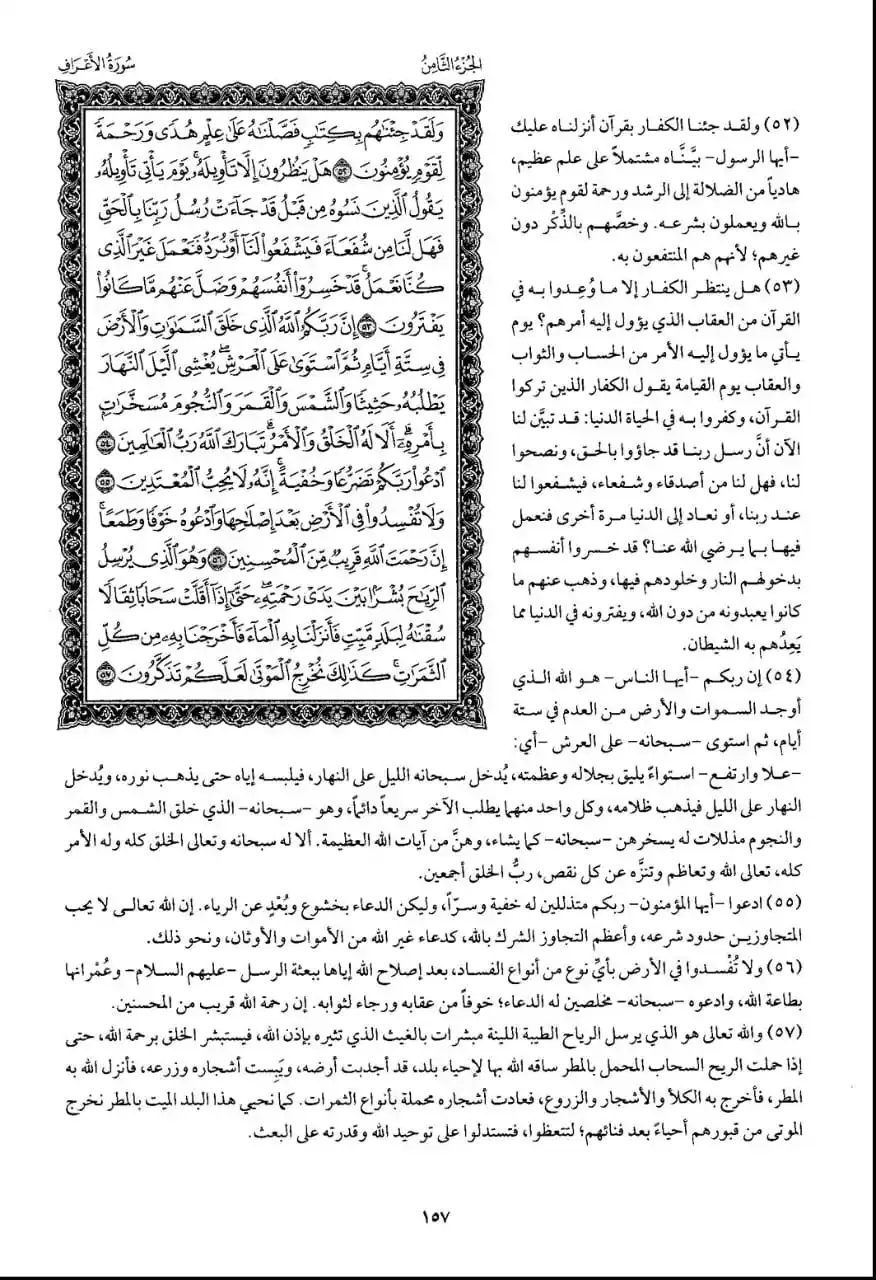 الجزء الثامن
سورة الأعراف
وَلَقَدْ جِئْنَٰهُم بِكِتَٰبٍ فَصَّلْنَٰهُ عَلَىٰ عِلْمٍ هُدًى وَرَحْمَةً
لِّقَوْمٍ يُؤْمِنُونَ ٥٢ هَلْ يَنظُرُونَ إِلَّا تَأْوِيلَهُۥ ۚ يَوْمَ يَأْتِى تَأْوِيلُهُۥ
يَقُولُ ٱلَّذِينَ نَسُوهُ مِن قَبْلُ قَدْ جَآءَتْ رُسُلُ رَبِّنَا بِٱلْحَقِّ
فَهَل لَّنَا مِن شُفَعَآءَ فَيَشْفَعُوا۟ لَنَآ أَوْ نُرَدُّ فَنَعْمَلَ غَيْرَ ٱلَّذِى
كُنَّا نَعْمَلُ ۚ قَدْ خَسِرُوٓا۟ أَنفُسَهُمْ وَضَلَّ عَنْهُم مَّا كَانُوا۟
يَفْتَرُونَ ٥٣ إِنَّ رَبَّكُمُ ٱللَّهُ ٱلَّذِى خَلَقَ ٱلسَّمَٰوَٰتِ وَٱلْأَرْضَ
فِى سِتَّةِ أَيَّامٍ ثُمَّ ٱسْتَوَىٰ عَلَى ٱلْعَرْشِ يُغْشِى ٱلَّيْلَ ٱلنَّهَارَ
يَطْلُبُهُۥ حَثِيثًا وَٱلشَّمْسَ وَٱلْقَمَرَ وَٱلنُّجُومَ مُسَخَّرَٰتٍۭ
بِأَمْرِهِۦٓ ۗ أَلَا لَهُ ٱلْخَلْقُ وَٱلْأَمْرُ ۗ تَبَارَكَ ٱللَّهُ رَبُّ ٱلْعَٰلَمِينَ ٥٤
ٱدْعُوا۟ رَبَّكُمْ تَضَرُّعًا وَخُفْيَةً ۚ إِنَّهُۥ لَا يُحِبُّ ٱلْمُعْتَدِينَ ٥٥
وَلَا تُفْسِدُوا۟ فِى ٱلْأَرْضِ بَعْدَ إِصْلَٰحِهَا وَٱدْعُوهُ خَوْفًا وَطَمَعًا ۚ
إِنَّ رَحْمَتَ ٱللَّهِ قَرِيبٌ مِّنَ ٱلْمُحْسِنِينَ ٥٦ وَهُوَ ٱلَّذِى يُرْسِلُ
ٱلرِّيَٰحَ بُشْرًۢا بَيْنَ يَدَىْ رَحْمَتِهِۦ ۖ حَتَّىٰٓ إِذَآ أَقَلَّتْ سَحَابًا ثِقَالًا
سُقْنَٰهُ لِبَلَدٍ مَّيِّتٍ فَأَنزَلْنَا بِهِ ٱلْمَآءَ فَأَخْرَجْنَا بِهِۦ مِن كُلِّ
ٱلثَّمَرَٰتِ ۚ كَذَٰلِكَ نُخْرِجُ ٱلْمَوْتَىٰ لَعَلَّكُمْ تَذَكَّرُونَ ٥٧
(٥٢) ولقد جئنا الكفار بقرآن أنزلناه عليك
-أيها الرسول- بيَّنَّاه مشتملاً على علم عظيم،
هادياً من الضلالة إلى الرشد ورحمة لقوم يؤمنون
بالله ويعملون بشرعه. وخصَّهم بالذِّكْر دون
غيرهم؛ لأنهم هم المنتفعون به.
(٥٣) هل ينتظر الكفار إلا ما وُعِدوا به في
القرآن من العقاب الذي يؤول إليه أمرهم؟ يوم
يأتي ما يؤول إليه الأمر من الحساب والثواب
والعقاب يوم القيامة يقول الكفار الذين تركوا
القرآن، وكفروا به في الحياة الدنيا: قد تبيَّن لنا
الآن أنَّ رسل ربنا قد جاؤوا بالحق، ونصحوا
لنا، فهل لنا من أصدقاء وشفعاء، فيشفعوا لنا
عند ربنا، أو نعاد إلى الدنيا مرة أخرى فنعمل
فيها بما يرضي الله عنا؟ قد خسروا أنفسهم
بدخولهم النار وخلودهم فيها، وذهب عنهم ما
كانوا يعبدونه من دون الله، ويفترونه في الدنيا مما
يَعِدُهم به الشيطان.
(٥٤) إن ربكم -أيها الناس- هو الله الذي
أوجد السموات والأرض من العدم في ستة
أيام، ثم استوى -سبحانه- على العرش -أي:
-علا وارتفع- استواءً يليق بجلاله وعظمته، يُدخل سبحانه الليل على النهار، فيلبسه إياه حتى يذهب نوره، ويُدخل
النهار على الليل فيذهب ظلامه، وكل واحد منهما يطلب الآخر سريعاً دائماً، وهو -سبحانه- الذي خلق الشمس والقمر
والنجوم مذللات له يسخرهن -سبحانه- كما يشاء، وهنَّ من آيات الله العظيمة. ألا له سبحانه وتعالى الخلق كله وله الأمر
كله، تعالى الله وتعاظم وتنزَّه عن كل نقص، ربُّ الخلق أجمعين.
(٥٥) ادعوا -أيها المؤمنون- ربكم متذللين له خفية وسرّاً، وليكن الدعاء بخشوع وبُعْدٍ عن الرياء. إن الله تعالى لا يحب
المتجاوزين حدود شرعه، وأعظم التجاوز الشرك بالله، كدعاء غير الله من الأموات والأوثان، ونحو ذلك.
(٥٦) ولا تُفْسدوا في الأرض بأيِّ نوع من أنواع الفساد، بعد إصلاح الله إياها ببعثة الرسل -عليهم السلام- وعُمْرانها
بطاعة الله، وادعوه -سبحانه- مخلصين له الدعاء؛ خوفاً من عقابه ورجاء لثوابه. إن رحمة الله قريب من المحسنين.
(٥٧) والله تعالى هو الذي يرسل الرياح الطيبة اللينة مبشرات بالغيث الذي تثيره بإذن الله، فيستبشر الخلق برحمة الله، حتى
إذا حملت الريح السحاب المحمل بالمطر ساقه الله بها لإحياء بلد، قد أجدبت أرضه، ويَبِست أشجاره وزرعه، فأنزل الله به
المطر، فأخرج به الكلأ والأشجار والزروع، فعادت أشجاره محملة بأنواع الثمرات. كما نحيي هذا البلد الميت بالمطر نخرج
الموتى من قبورهم أحياءً بعد فنائهم؛ لتتعظوا، فتستدلوا على توحيد الله وقدرته على البعث.
١٥٧